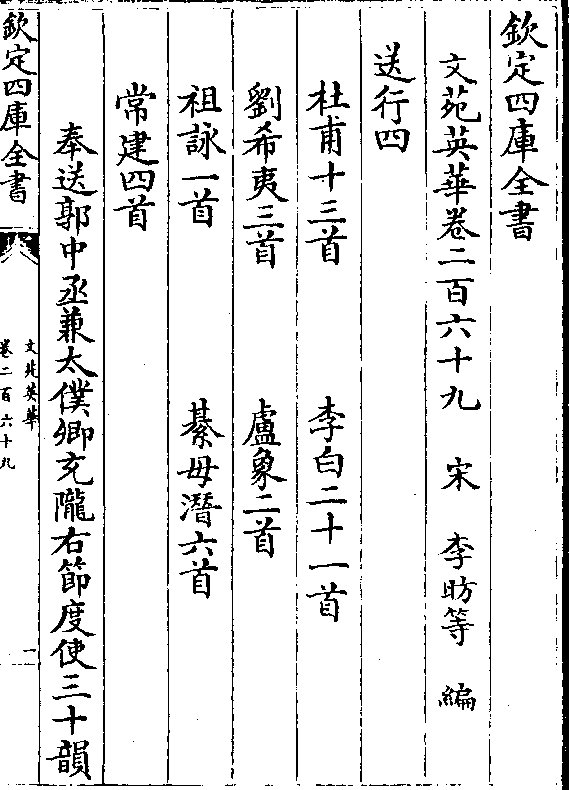 欽定四庫全書
文苑英華卷二百六十九 宋 李昉等 編
送行四
杜甫十三首 李白二十一首
劉希夷三首 盧象二首
祖詠一首 綦毋潛六首
常建四首
奉送郭中丞兼太僕卿充隴右節度使三十韻
欽定四庫全書
文苑英華
卷二百六十九
一